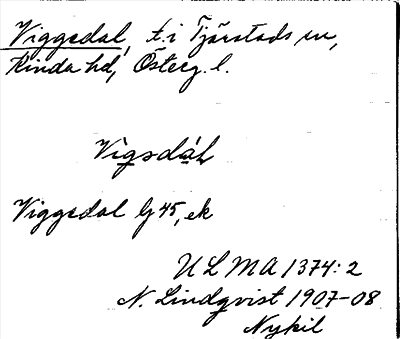 Viggsdal, t. i Tjärstads sn,
Kinda hd, Österg. l.
VigsdáL
Viggsdal G 45, ek
ULMA 1374:2
N. Lindqvist 1907-08
Nykil